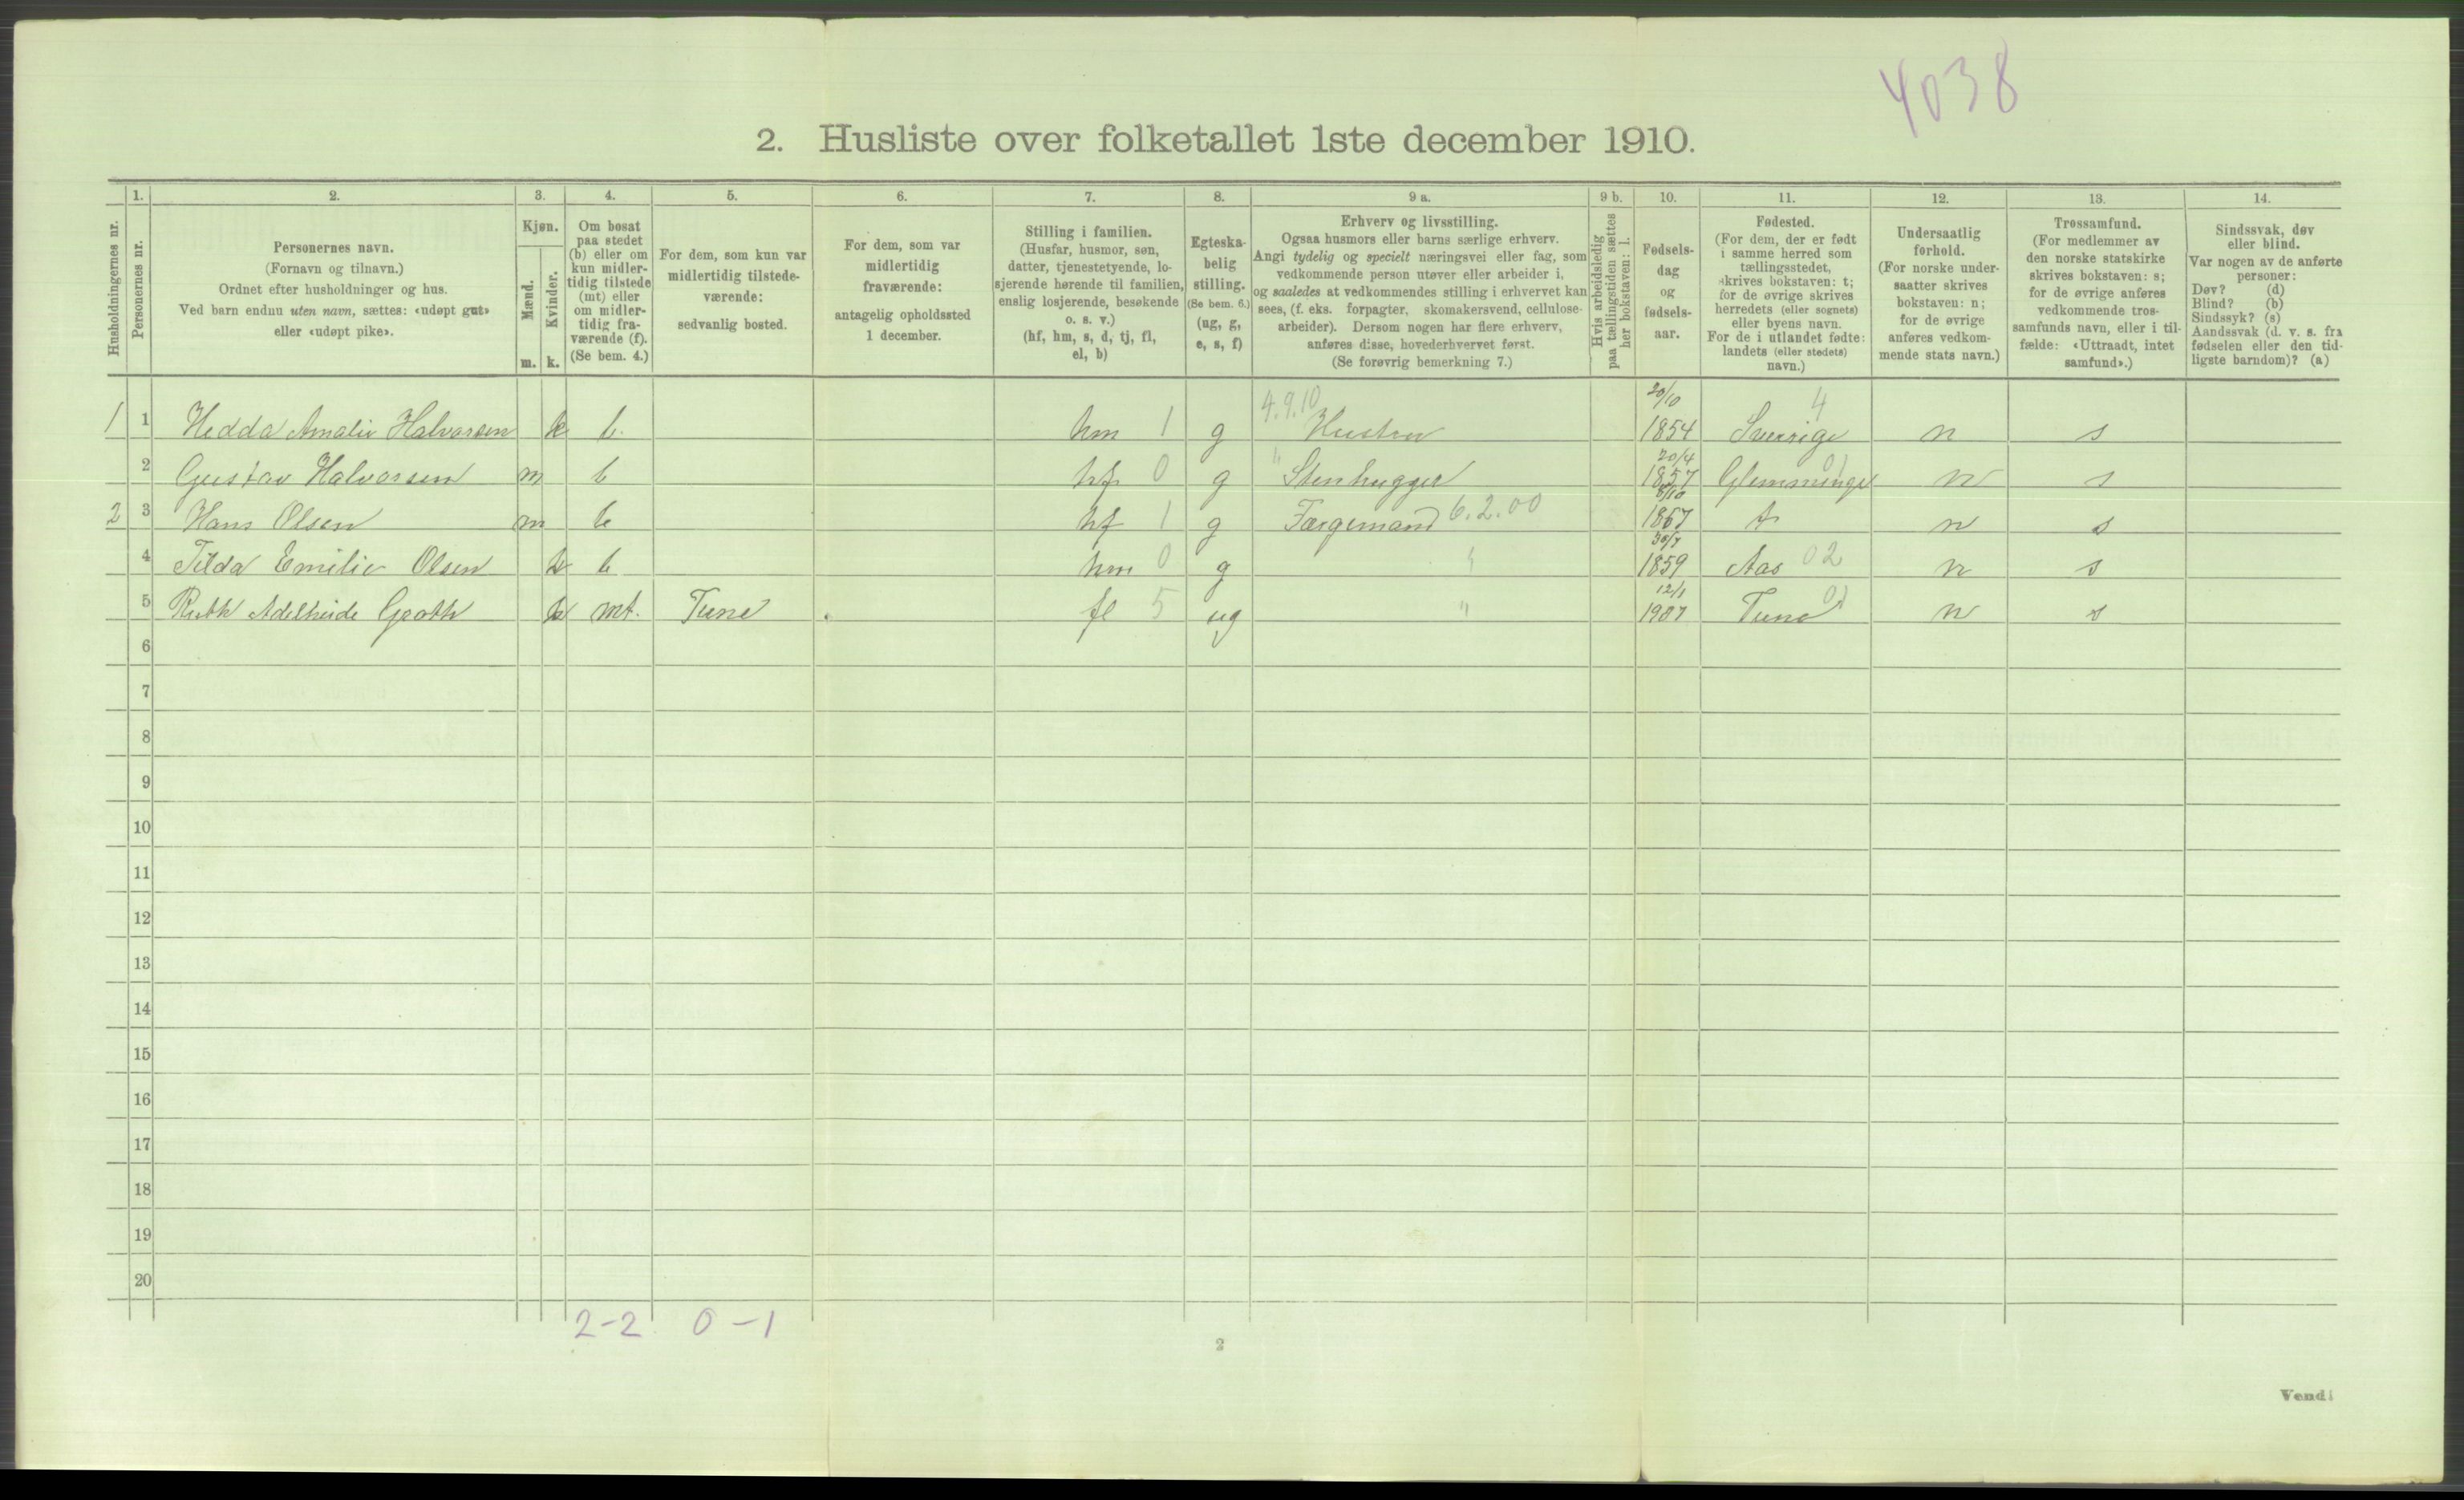 4038
2. Husliste over folketallet 1ste december 1910.
Husholdningernes nr.
1.
Personernes nr.
2.
Personernes navn.
(Fornavn og tilnavn.)
Ordnet efter husholdninger og hus.
Ved barn endnu uten navn, sættes: «udøpt gut»
eller «udøpt pike».
3.
Kjøn.
Mænd.
m.
Kvinder.
k.
4.
Om bosat
paa stedet
(b) eller om
kun midler-
tidig tilstede
(mt) eller
om midler-
tidig fra-
værende (f).
(Se bem. 4.)
5.
For dem, som kun var
midlertidig tilstede-
værende:
sedvanlig bosted.
6.
For dem, som var
midlertidig
fraværende:
antagelig opholdssted
1 december.
7.
Stilling i familien.
(Husfar, husmor, søn,
datter, tjenestetyende, lo-
sjerende hørende til familien,
enslig losjerende, besøkende
o. s. v.)
(hf, hm, s, d, tj, fl,
el, b)
8.
Egteska-
belig
stilling.
(Se bem. 6.)
(ug, g,
e, s, f)
9 a.
Erhverv og livsstilling.
Ogsaa husmors eller barns særlige erhverv.
Angi tydelig og specielt næringsvei eller fag, som
vedkommende person utøver eller arbeider i,
og saaledes at vedkommendes stilling i erhvervet kan
sees, (f. eks. forpagter, skomakersvend, cellulose-
arbeider). Dersom nogen har flere erhverv,
anføres disse, hovederhvervet først.
(Se forøvrig bemerkning 7.)
9 b.
Hvis arbeidsledig
paa tællingstiden sættes
her bokstaven: l.
10.
Fødsels-
dag
og
fødsels-
aar.
11.
Fødested.
(For dem, der er født
i samme herred som
tællingsstedet,
skrives bokstaven: t;
for de øvrige skrives
herredets (eller sognets)
eller byens navn.
For de i utlandet fødte:
landets (eller stedets)
navn.)
12.
Undersaatlig
forhold.
(For norske under-
saatter skrives
bokstaven: n;
for de øvrige
anføres vedkom-
mende stats navn.)
13.
Trossamfund.
(For medlemmer av
den norske statskirke
skrives bokstaven: s;
for de øvrige anføres
vedkommende tros-
samfunds navn, eller i til-
fælde: «Uttraadt, intet
samfund».)
14.
Sindssvak, døv
eller blind.
Var nogen av de anførte
personer:
Døv? (d)
Blind? (b)
Sindssyk? (s)
Aandssvak (d. v. s. fra
fødselen eller den tid-
ligste barndom)? (a)
4.9.10 20/10 4
1 1 Hedda Amalie Halvorsen k b. hm 1 g Hustru 1854 Sverrige n s
2 Gustav Halvorsen m b hf 0 g " Stenhugger 20/4 1857 Glemminge 01 n s
2 3 Hans Olsen m b hf 1 g Færgemand 6.2.00 8/10 1867 t n s
4 Tilda Emilie Olsen k b hm 0 g " 30/7 1859 Aas 02 n s
5 Ruth Adelheide Groth k mt. Tune fl 5 ug " 12/1 1907 Tune 01 n s
6
7
8
9
10
11
12
13
14
15
16
17
18
19
20
2-2 0-1
2
Vend!